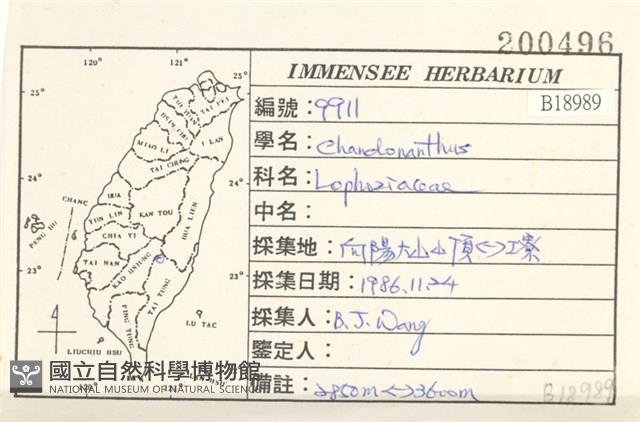 200496
IMMENSEE HERBARIUM
編號：9911
B18989
學名：Chandonanthus
科名：Lophoziaceae
中名：
採集地：向陽大山山頂<->工寮
採集日期：1986.11.24
採集人：B.J. Wang
鑒定人：
備註：2850m<->3600m
B18989
120° 121°
25° 25°
TAO YUAN
TAI PEI
HSIN CHU
I LAN
MIAO LI
TAI CHUNG
24° 24°
CHANG HUA
HUA LIEN
NAN TOU
YUN LIN
PENG HU
CHIA YI
TAI NAN
KAO HSIUNG
23° 23°
TAI TUNG
PING TUNG
LU TAO
LIUCHIU HSU
國立自然科學博物館
NATIONAL MUSEUM OF NATURAL SCIENCE
120°